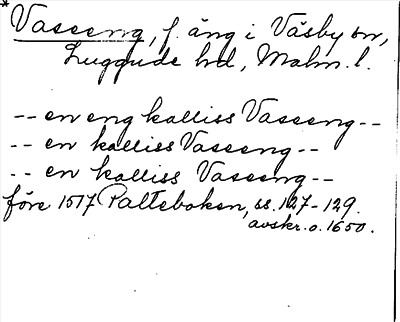 *
Vasseng, f. äng i Väsby sn,
Luggude hd, Malm. l.
-- en eng kalliss Vasseng --
-- en kalliss Vasseng --
-- en kalliss Vasseng --
före 1517 Palteboken, ss. 127-129.
avskr. o. 1650.